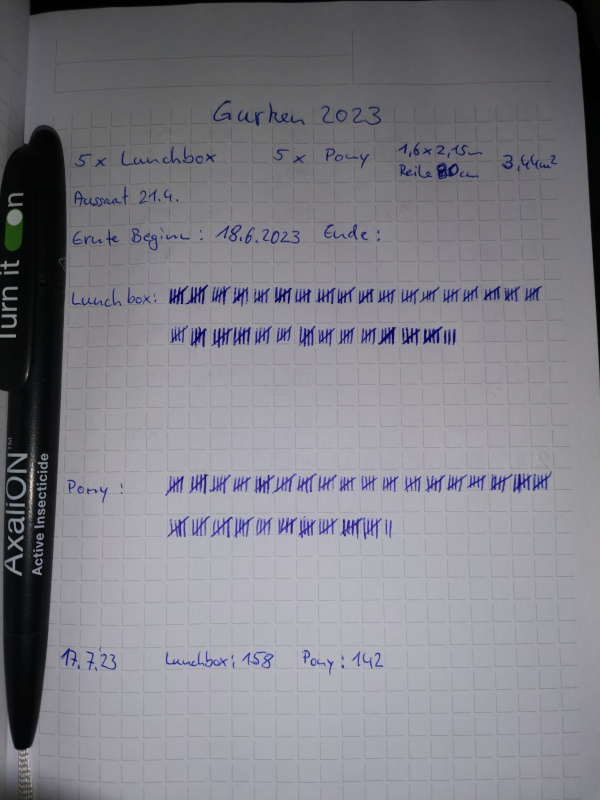 Gurken 2023
5 x Lunchbox 5 x Pony 1,6 x 2,15m 3,44m²
Reihe 80 cm
Aussaat 21.4.
Ernte Beginn: 18.6.2023 Ende:
Lunchbox:
Pony:
17.7.23 Lunchbox: 158 Pony: 142
Turn it on
AxaliON™
Active Insecticide